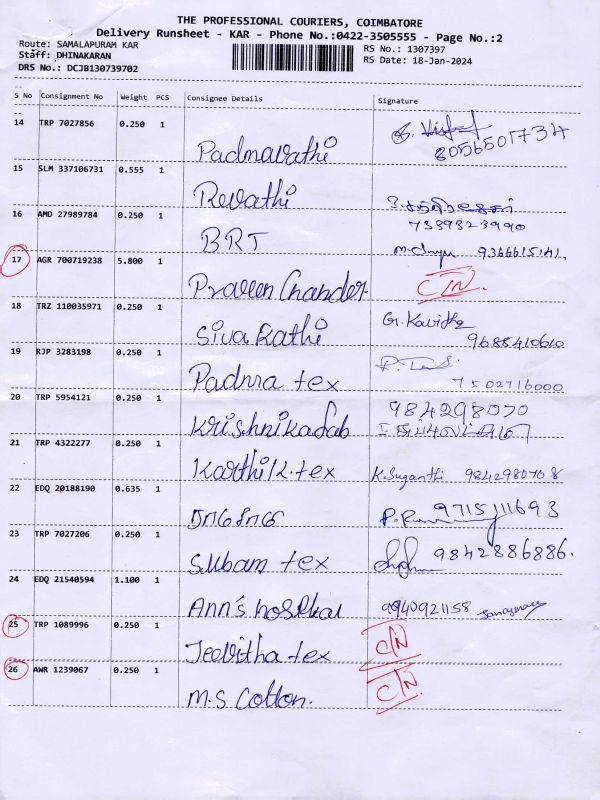 THE PROFESSIONAL COURIERS, COIMBATORE
Delivery Runsheet - KAR - Phone No.:0422-3505555 - Page No.:2
Route: SAMALAPURAM KAR
RS No.: 1307397
Staff: DHINAKARAN
RS Date: 18-Jan-2024
DRS No.: DCJB130739702
S No Consignment No Weight PCS Consignee Details Signature
14 TRP 7027856 0.250 1
Padmavathi 8056501734
15 SLM 337106731 0.555 1
Revathi
16 AMD 27989784 0.250 1 7339323990
BRT 9366615141.
17 AGR 700719238 5.800 1
Praveen Chander C/N
18 TRZ 110035971 0.250 1
Siva Rathi G. Kavitha 9688410610
19 RJP 3283198 0.250 1
Padma tex 7502716000
20 TRP 5954121 0.250 1 984298070
Krishnikafab
21 TRP 4322277 0.250 1
Karthik.tex K.Suganthi 9842980708
22 EDQ 20188190 0.635 1
9715111693
23 TRP 7027206 0.250 1
Subam tex 9842886886.
24 EDQ 21540594 1.100 1
Ann's hospital 9940921158
25 TRP 1089996 0.250 1
Jeevitha tex C/N
26 AWR 1239067 0.250 1
M.S Cotton. C/N